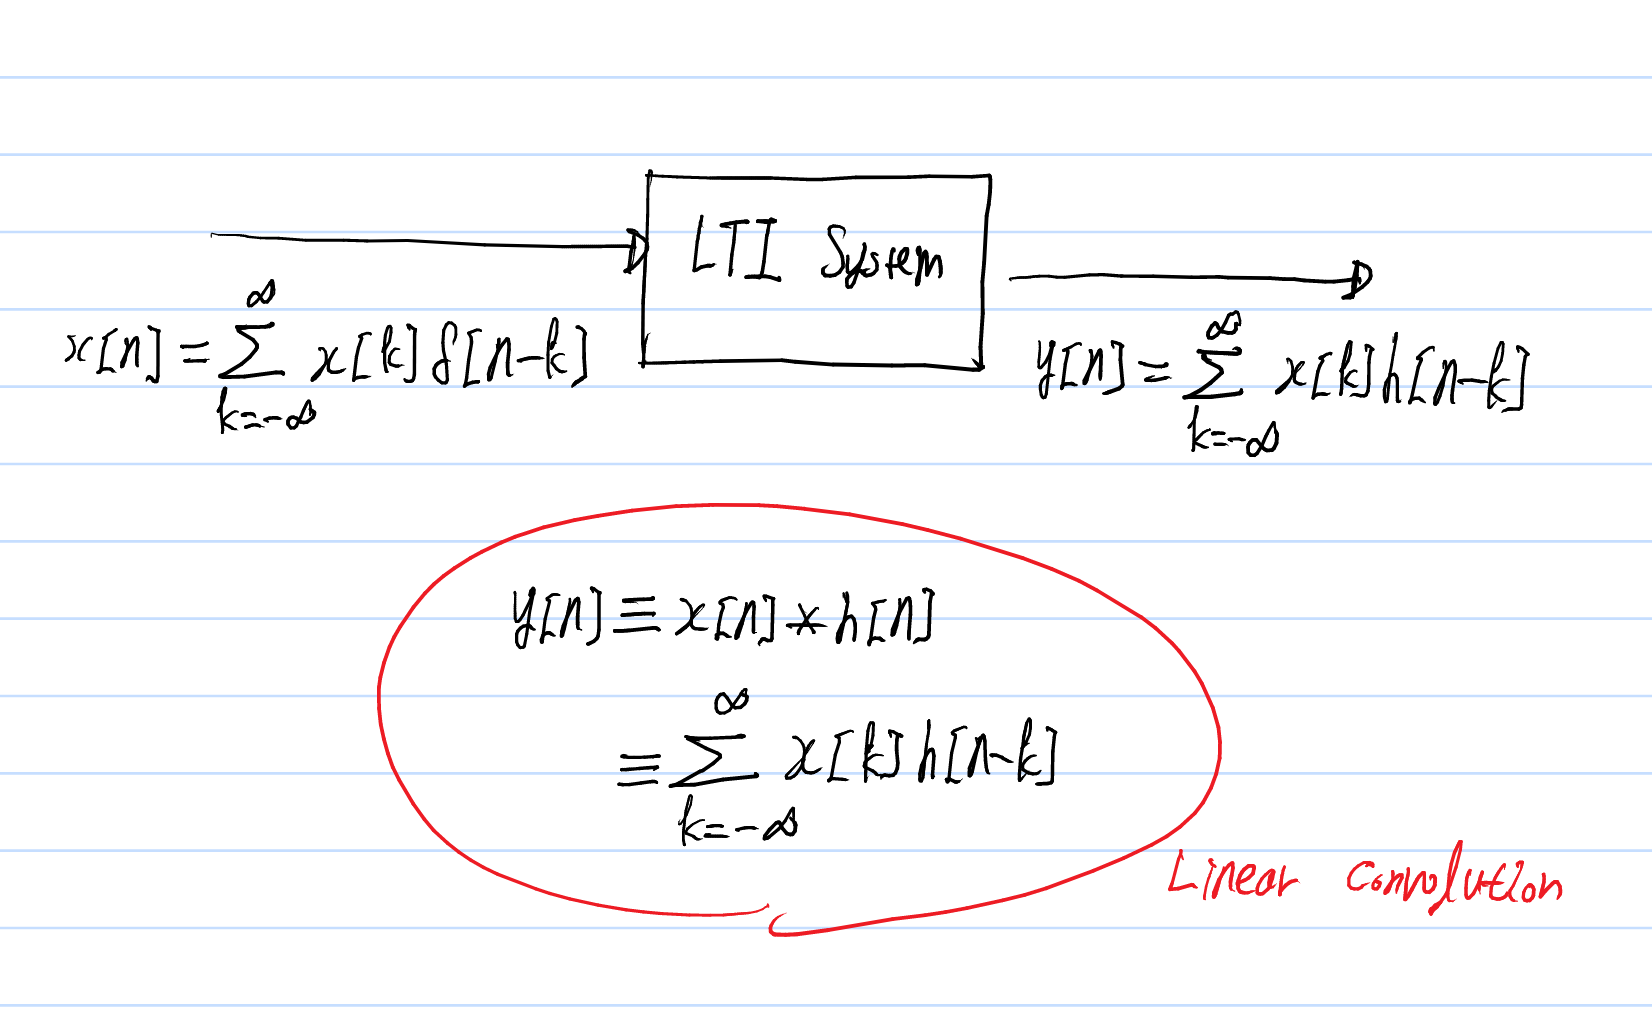 LTI System
x[n] = ∑_{k=-∞}^{∞} x[k] δ[n-k]
y[n] = ∑_{k=-∞}^{∞} x[k] h[n-k]
y[n] ≡ x[n] * h[n]
≡ ∑_{k=-∞}^{∞} x[k] h[n-k]
Linear convolution